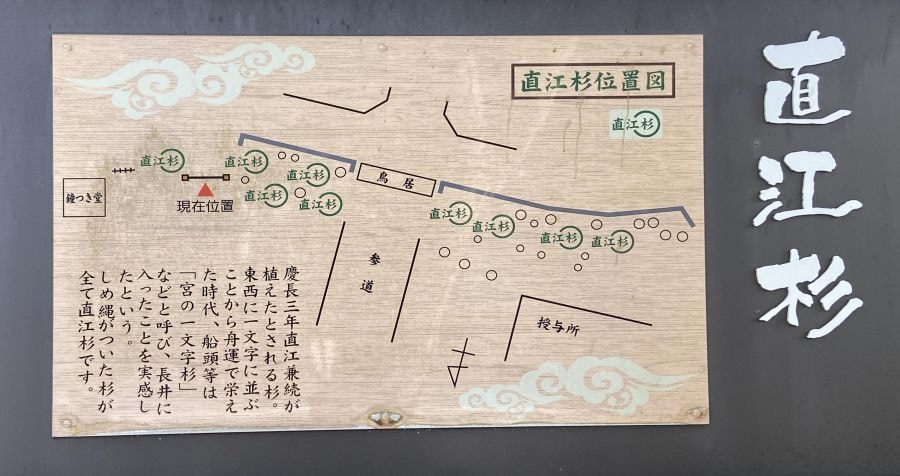 直江杉
直江杉位置図
直江杉
直江杉
直江杉
直江杉
直江杉
直江杉
鳥居
鐘つき堂
現在位置
直江杉
直江杉
直江杉
直江杉
参道
授与所
慶長三年直江兼続が
植えたとされる杉。
東西に一文字に並ぶ
ことから舟運で栄え
た時代、船頭等は
「宮の一文字杉」
などと呼び、長井に
入ったことを実感し
たという。
しめ縄がついた杉が
全て直江杉です。